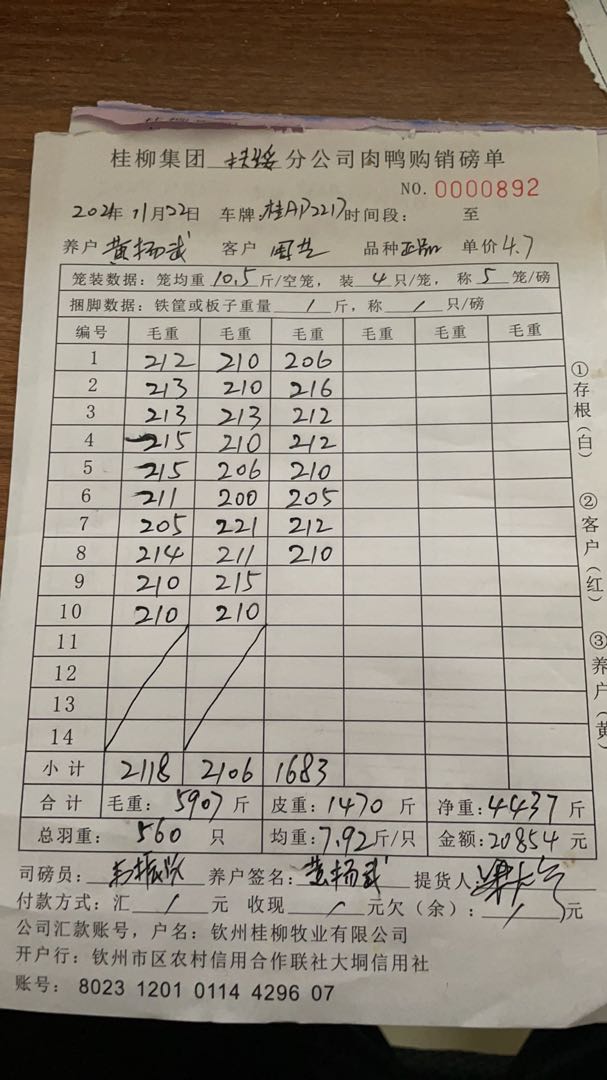 桂柳集团 扶绥 分公司肉鸭购销磅单
NO. 0000892
2021年11月22日 车牌:桂AP2217 时间段: 至
养户 黄扬武 客户 周芸 品种 正品 单价 4.7
笼装数据: 笼均重 10.5 斤/空笼, 装 4 只/笼, 称 5 笼/磅
捆脚数据: 铁筐或板子重量 / 斤, 称 / 只/磅
编号 毛重 毛重 毛重 毛重 毛重 毛重
1 212 210 206
2 213 210 216
3 213 213 212
4 215 210 212
5 215 206 210
6 211 200 205
7 205 221 212
8 214 211 210
9 210 215
10 210 210
11
12
13
14
小计 2118 2106 1683
合计 毛重: 5907 斤 皮重: 1470 斤 净重: 4437 斤
总羽重: 560 只 均重: 7.92 斤/只 金额: 20854 元
司磅员: 养户签名: 黄扬武 提货人:
付款方式: 汇 / 元 收现 / 元 欠(余): / 元
公司汇款账号, 户名: 钦州桂柳牧业有限公司
开户行: 钦州市区农村信用合作联社大垌信用社
账号: 8023 1201 0114 4296 07
①存根(白)
②客户(红)
③养户(黄